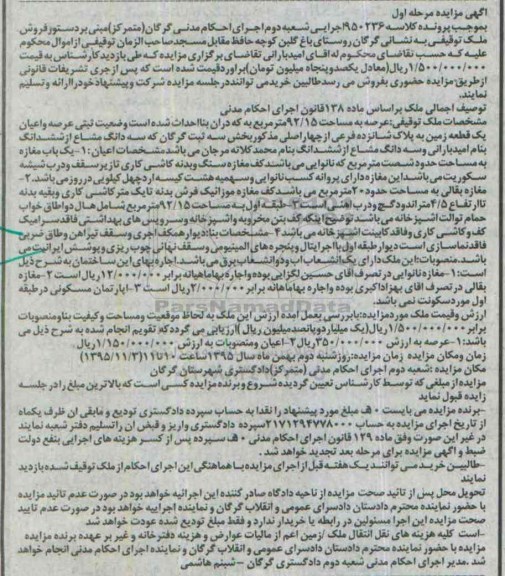 آگهی مزایده مرحله اول
بموجب پرونده کلاسه ۹۵۰۲۳۶ اجرایی شعبه دوم اجرای احکام مدنی گرگان (متمرکز) مبنی بر دستور فروش
ملک توقیفی به نشانی گرگان روستای باغ گلبن کوچه حافظ مقابل مسجد صاحب الزمان توقیفی از اموال محکوم
علیه که حسب تقاضای محکوم له اقای امید بارانی تقاضای برگزاری مزایده که طی بازدید کارشناس به قیمت
۱/۵۰۰/۰۰۰/۰۰۰ ریال (معادل یکصد وپنجاه میلیون تومان) براورد قیمت شده است که پس از جری تشریفات قانونی
از طریق مزایده حضوری بفروش می رسد طالبین خرید می توانند در جلسه مزایده شرکت و پیشنهاد خود را ارائه و تسلیم
نمایند.
توصیف اجمالی ملک براساس ماده ۱۳۸ قانون اجرای احکام مدنی
مشخصات ملک توقیفی: عرصه به مساحت ۹۲/۱۵ متر مربع به که در ان بنا احداث شده است وضعیت ثبتی عرصه و اعیان
یک قطعه زمین به پلاک شانزده فرعی از چهار اصلی مذکور بخش سه ثبت گرگان که سه دانگ مشاع از ششدانگ
بنام امید بارانی و سه دانگ مشاع از ششدانگ بنام محمد کلاته مرجان می باشد مشخصات اعیان: ۱- یک باب مغازه
به مساحت حدود شصت متر مربع که نانوایی می باشد کف مغازه سنگ و بدنه کاشی کاری تا زیر سقف و درب شیشه
سکوریت می باشد این مغازه دارای پروانه کسب نانوایی و سهمیه هشت کیسه ارد چهل کیلویی در روز می باشد. ۲-
مغازه بقالی به مساحت حدود ۲۰ متر مربع می باشد کف مغازه موزائیک فرش بدنه تا یک متر کاشی کاری وبقیه بدنه
تا ارتفاع ۴/۵ متر اندود گچ و درب طبقه اول به مساحت ۹۲/۱۵ متر مربع شامل هال دو اطاق خواب
حمام توالت اشپزخانه می باشد توضیح اینکه کف بتن مخروبه و اشپزخانه وسرویس های بهداشتی فاقد سرامیک
کف و کاشی کاری و فاقد کابینت اشپزخانه می باشد ۴- مشخصات بنا: دیوار همکف اجری و سقف تیراهن وطاق ضربی
فاقد نماسازی است دیوار طبقه اول با اجر ایتال و پنجره های المینیومی وسقف نهائی چوب ریزی و پوشش ایرانیت می
باشد. منصوبات: این ملک دارای یک انشعاب اب و دو انشعاب برق می باشد. اجاره بهای این ساختمان به شرح ذیل
است: ۱- مغازه نانوایی در تصرف اقای حسین لکزایی بوده و اجاره بها ماهانه برابر ۱۲/۰۰۰/۰۰۰ ریال است ۲- مغازه
بقالی در تصرف اقای بهزاد اکبری بوده و اجاره بها ماهانه برابر ۲/۰۰۰/۰۰۰ ریال است ۳- اپارتمان مسکونی در طبقه
اول مورد سکونت نمی باشد.
ارزش وقیمت ملک مورد مزایده: بابررسی بعمل امده ارزش این ملک به لحاظ موقعیت و مساحت و کیفیت بنا و منصوبات
برابر ۱/۵۰۰/۰۰۰/۰۰۰ ریال (یک میلیارد و پانصد میلیون ریال) ارزیابی می گردد که تقویم انجام شده به شرح ذیل می
باشد: ۱- عرصه به ارزش ۳۵۰/۰۰۰/۰۰۰ ریال ۲- اعیان ومنصوبات به ارزش ۱/۱۵۰/۰۰۰/۰۰۰ ریال.
زمان ومکان مزایده زمان مزایده: روز شنبه دوم بهمن ماه سال ۱۳۹۵ ساعت ۱۰ تا ۱۱ (۱۳۹۵/۱۱/۲)
مکان مزایده: شعبه دوم اجرای احکام مدنی (متمرکز) دادگستری شهرستان گرگان
مزایده از مبلغی که توسط کارشناس تعیین گردیده شروع و برنده مزایده کسی است که بالاترین مبلغ را در جلسه
زایده قبول نماید
-برنده مزایده می بایست ۱۰٪ مبلغ مورد پیشنهاد را نقدا به حساب سپرده دادگستری تودیع و مابقی ان ظرف یکماه
از تاریخ اجرای مزایده به حساب ۲۱۷۱۲۹۴۷۷۸۰۰۰ سپرده دادگستری واریز و قبض ان راتسلیم دفتر شعبه نمایند
در غیر این صورت وفق ماده ۱۲۹ قانون اجرای احکام مدنی ۱۰٪ سپرده پس از کسر هزینه های اجرایی بنفع دولت
ضبط و اگهی مزایده برای مرحله بعد تجدید خواهد شد.
-طالبین خرید می توانند یک هفته قبل از اجرای مزایده با هماهنگی این اجرای احکام از ملک توقیف شده بازدید
نمایند
تحویل محل پس از تائید صحت مزایده از ناحیه دادگاه صادر کننده این اجرائیه خواهد بود در صورت عدم تائید مزایده
با حضور نماینده محترم دادستان دادسرای عمومی و انقلاب گرگان و نماینده اجراییه خواهد بود در صورت عدم تایید
صحت مزایده این اجرا مسئولین در رابطه با خریدار ندارد و فقط مبلغ تودیع شده عودت خواهد شد
-است کلیه هزینه های نقل انتقال ملک /زمین اعم از مالیات عوارض و هزینه دفترخانه و غیر بر عهده برنده مزایده
مزایده با حضور نماینده محترم دادستان دادسرای عمومی و انقلاب گرگان و نماینده اجرای احکام مدنی انجام خواهد
شد .مدیر اجرای احکام مدنی شعبه دوم دادگستری گرگان - شبنم هاشمی
ParsNamadData